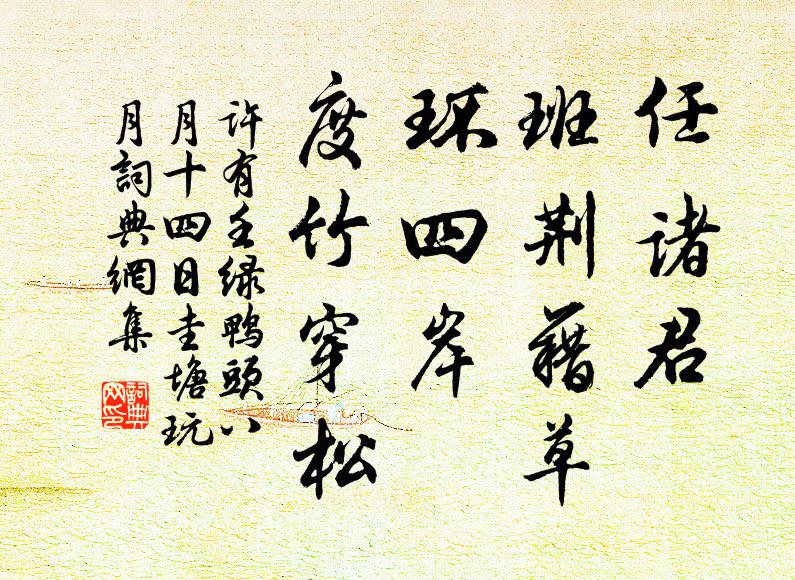 任諸君
班荆藉草
环四岸
度竹穿松
许有壬绿鸭頭八
月十四日圭塘玩
月詞典網集
詞典
网印